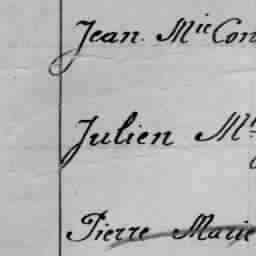 Jean Mie Con
Julien M
Pierre Marie